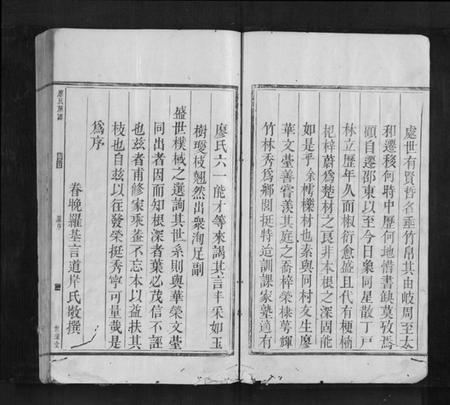 處世有賢哲名垂竹帛其由岐周至太
和遷移何時中歷何地惜書缺莫攷焉
顧自遷邵東以至今日象同星散丁戶
林立歷年久而椒衍愈盛且代有梗楠
杞梓蔚爲楚材之良非本根之深固能
如是乎余樗櫟材也素與同村友生廖
華文瑩善嘗羨其庭之喬梓榮棣萼輝
竹林秀爲鄉閭挺特造訓課家塾適有
廖氏六一能才等來謁其言丰采如玉
樹瓊枝翹然出衆洵足副
盛世棫樸之選詢其世系則與華榮文瑩
同出者因而知根深者葉必茂信不誣
也玆者甫修家乘蓋不忘本以益扶其
枝也自玆以往發榮挺秀寧可量哉是
爲序
春晚羅基言道岸氏敬撰
廖氏族譜